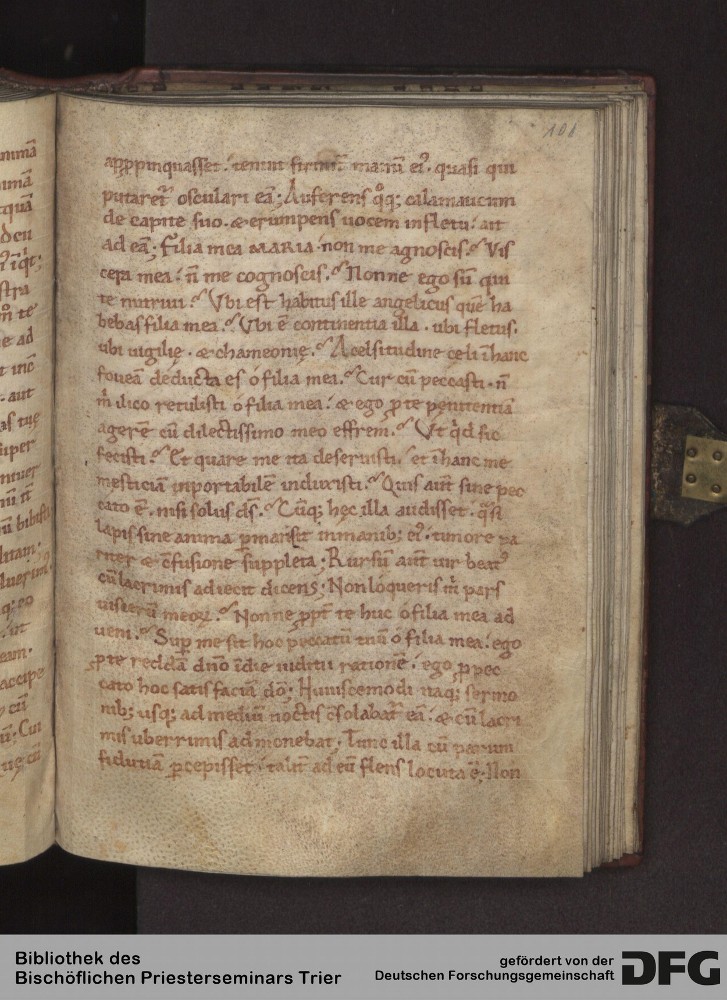 nimã
101
appropinquasset. tenuit firmit̃ manũ ei᷒. quasi qui
putaret᷑ osculari eã; Auferens q̊q; calamaucum
de capite suo. & erumpens uocem in fletu. ait
ad eã; Filia mea MARIA. non me agnoscis. Vis
cera mea. ñ me cognoscis. Nonne ego sũ qui
te nutriui. Vbi est habitus ille angelicus quẽ ha
bebas filia mea. Vbi ẽ continentia illa. ubi fletus.
ubi uigilię. & chameonię. A celsitudine celi ĩ hanc
foueã deducta es ó filia mea. Cur cũ peccasti. ñ
m̃ ilico retulisti ó filia mea. & ego ꝓ te penitentiã
agerẽ cũ dilectissimo meo effrem. Vt qͥd sic
fecisti. Et quare me ita deseruisti. et ĩ hanc me
mesticiã inportabilẽ induxisti. Quis aũt sine pec
cato ẽ. nisi solus d̃s. Cũq; hęc illa audisset. q̃si
lapis sine anima ꝑmansit in manib; ei᷒. timore pa
riter & cõfusione suppleta; Rursũ aũt uir beat᷒
cũ lacrimis adiecit dicens; Non loqueris m̃ pars
uiscerũ meoꝝ. Nonne ꝓpt̃ te huc ó filia mea ad
ueni. Suꝑ me sit hoc peccatũ tuũ ó filia mea. ego
ꝓ te reddã dño ĩ die iuditii rationẽ. ego ꝓ pec
cato hoc satisfaciã dõ; Huiuscemodi itaq; sermo
nib; usq; ad mediũ noctis cõsolabat᷑ eã. & cũ lacri
mis uberrimis admonebat. Tunc illa cũ parum
fidutiã ꝑcepisset. talit̃ ad eũ flens locuta ẽ; Non
Bibliothek des
Bischöflichen Priesterseminars Trier
gefördert von der
Deutschen Forschungsgemeinschaft
DFG